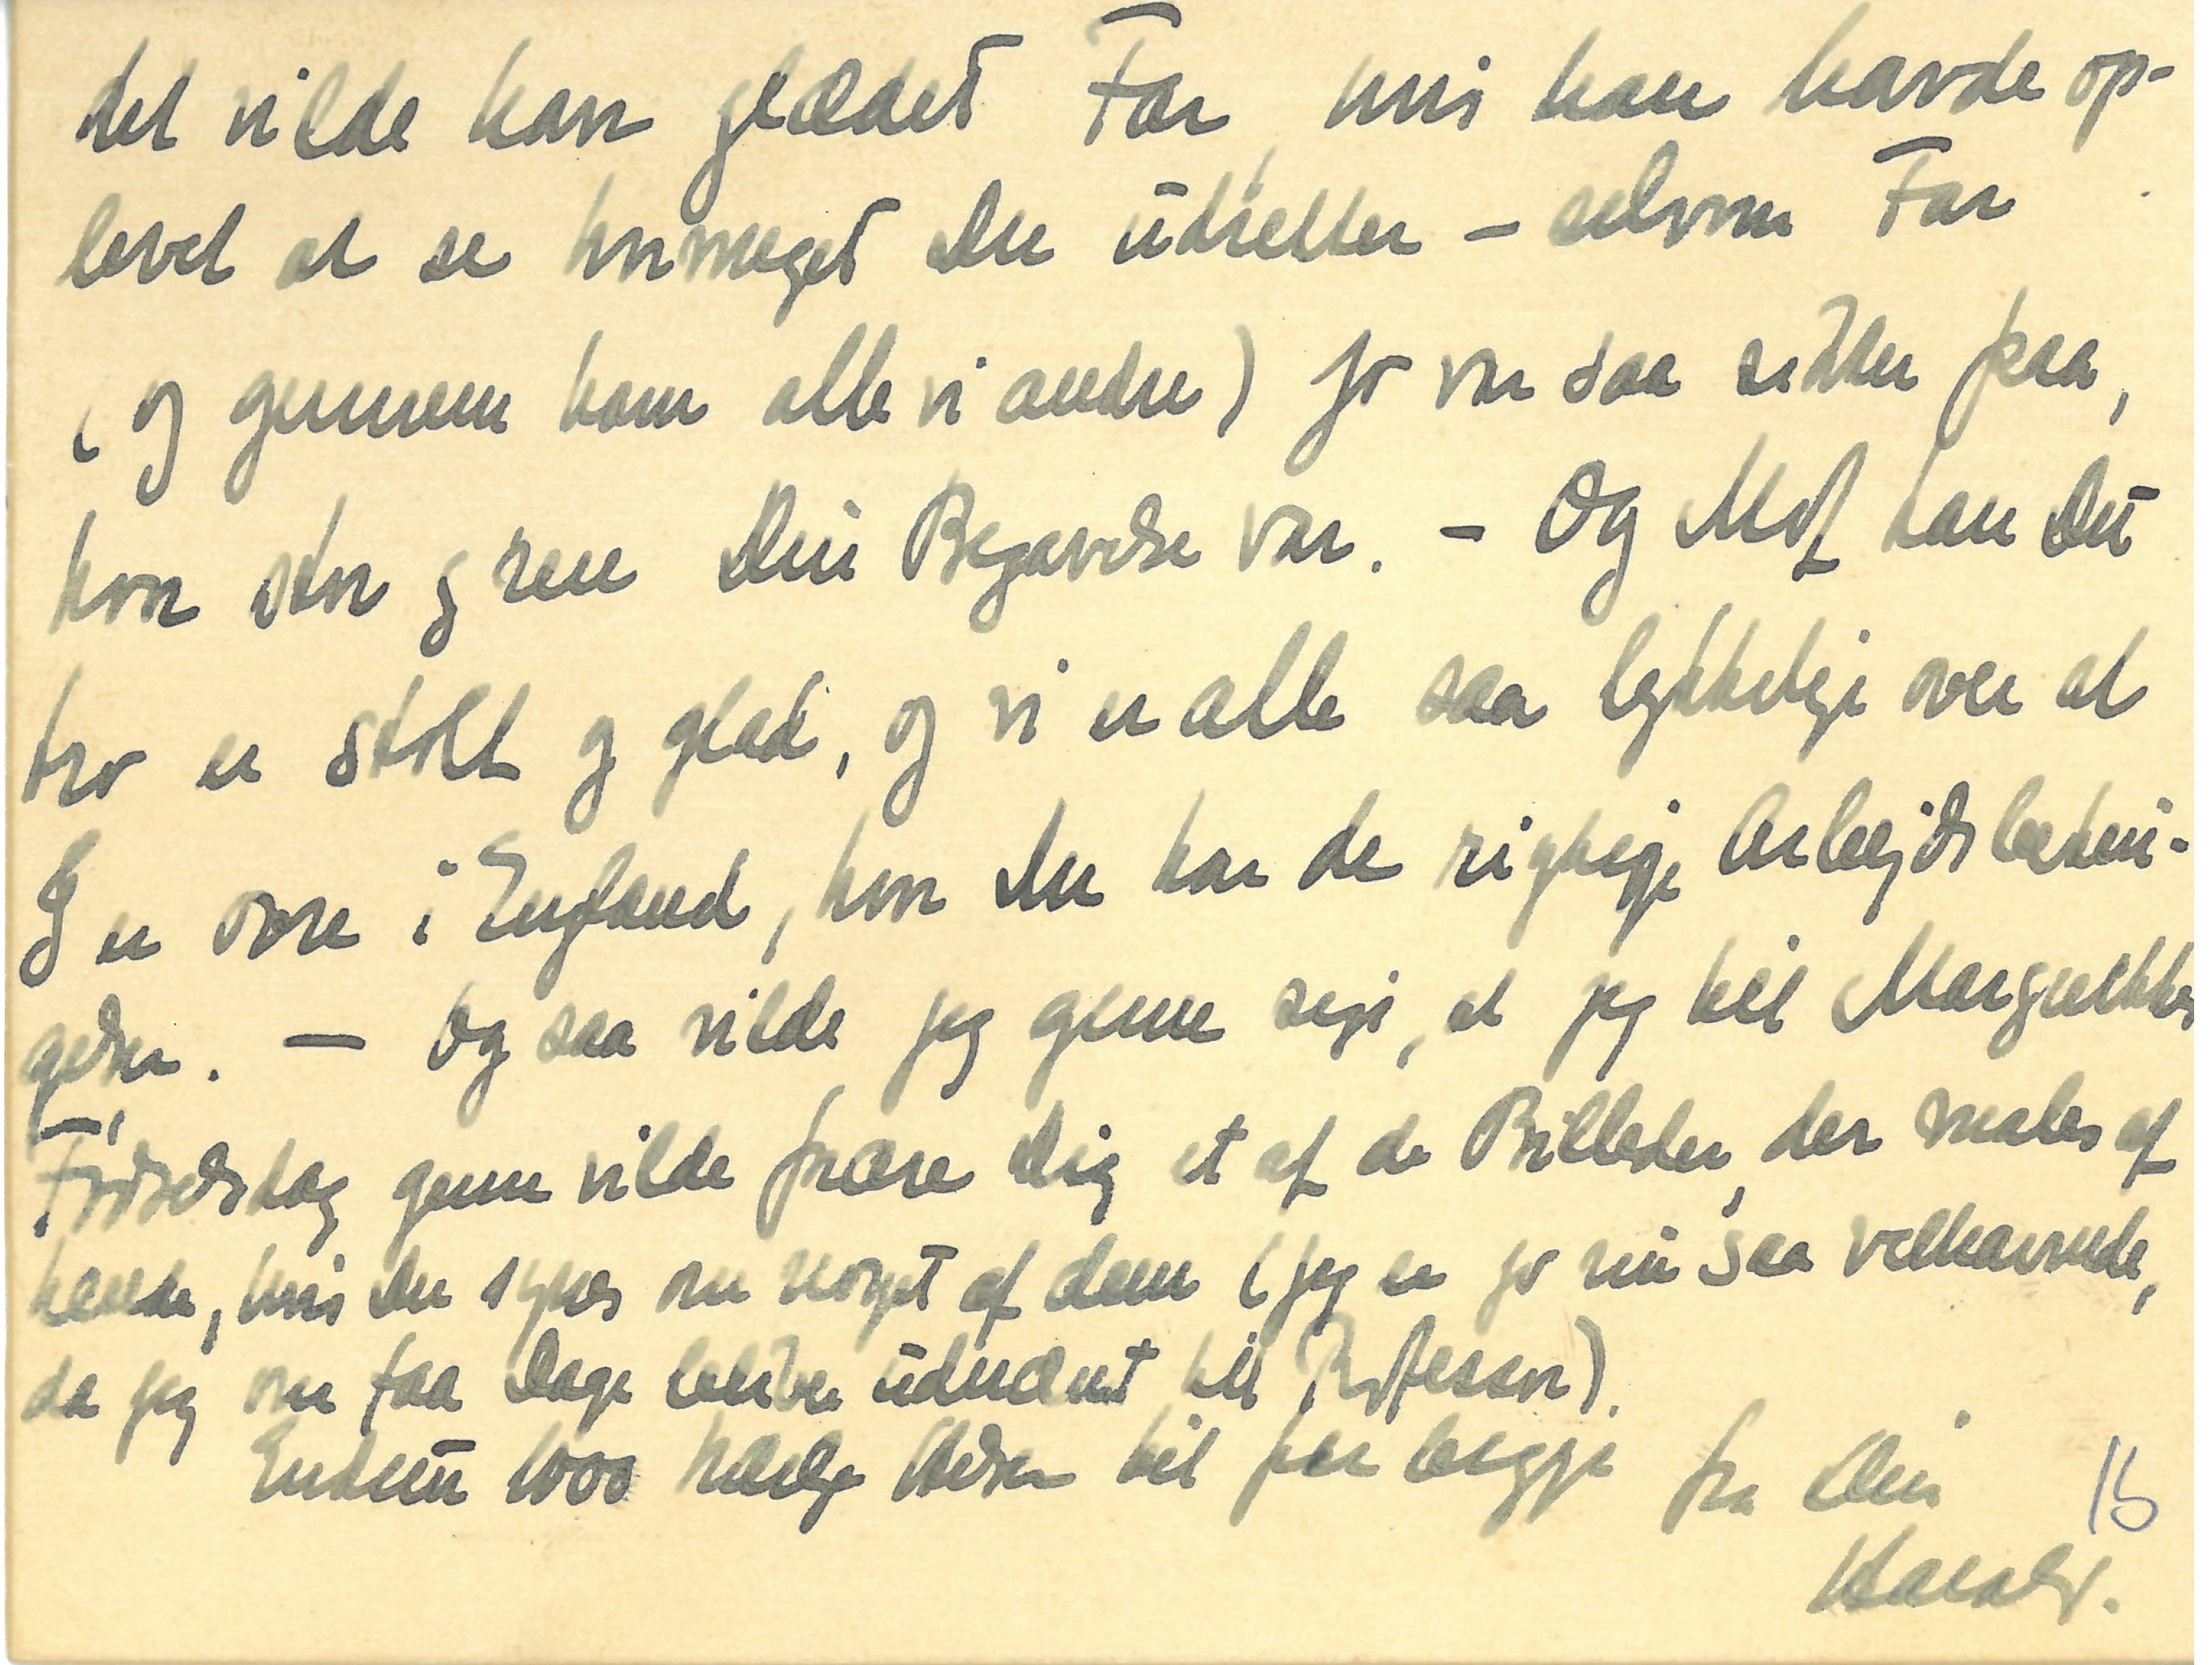 det vilde have glædet Far, hvis han havde op-
levet at se hvormeget Du udretter – selvom Far
(og gennem ham alle vi andre) jo var saa sikker paa,
hvor stor og ren Din Begavelse var. – Og Mor kan Du
tro er stolt og glad, og vi er alle saa lykkelige over at
I er ovre i England, hvor Du har de rigtige Arbejdsbetin-
gelser. – Og saa vilde jeg gerne sige, at jeg til Margrethes
Fødselsdag gerne vilde forære Dig et af de Billeder, der males af
hende, hvis Du synes om noget af dem (jeg er jo nu saa velhavende,
da jeg om faa Dage bliver udnævnt til Professor).
Endnu 1000 kærlige Hilsner til Jer begge fra Din
16
Harald.